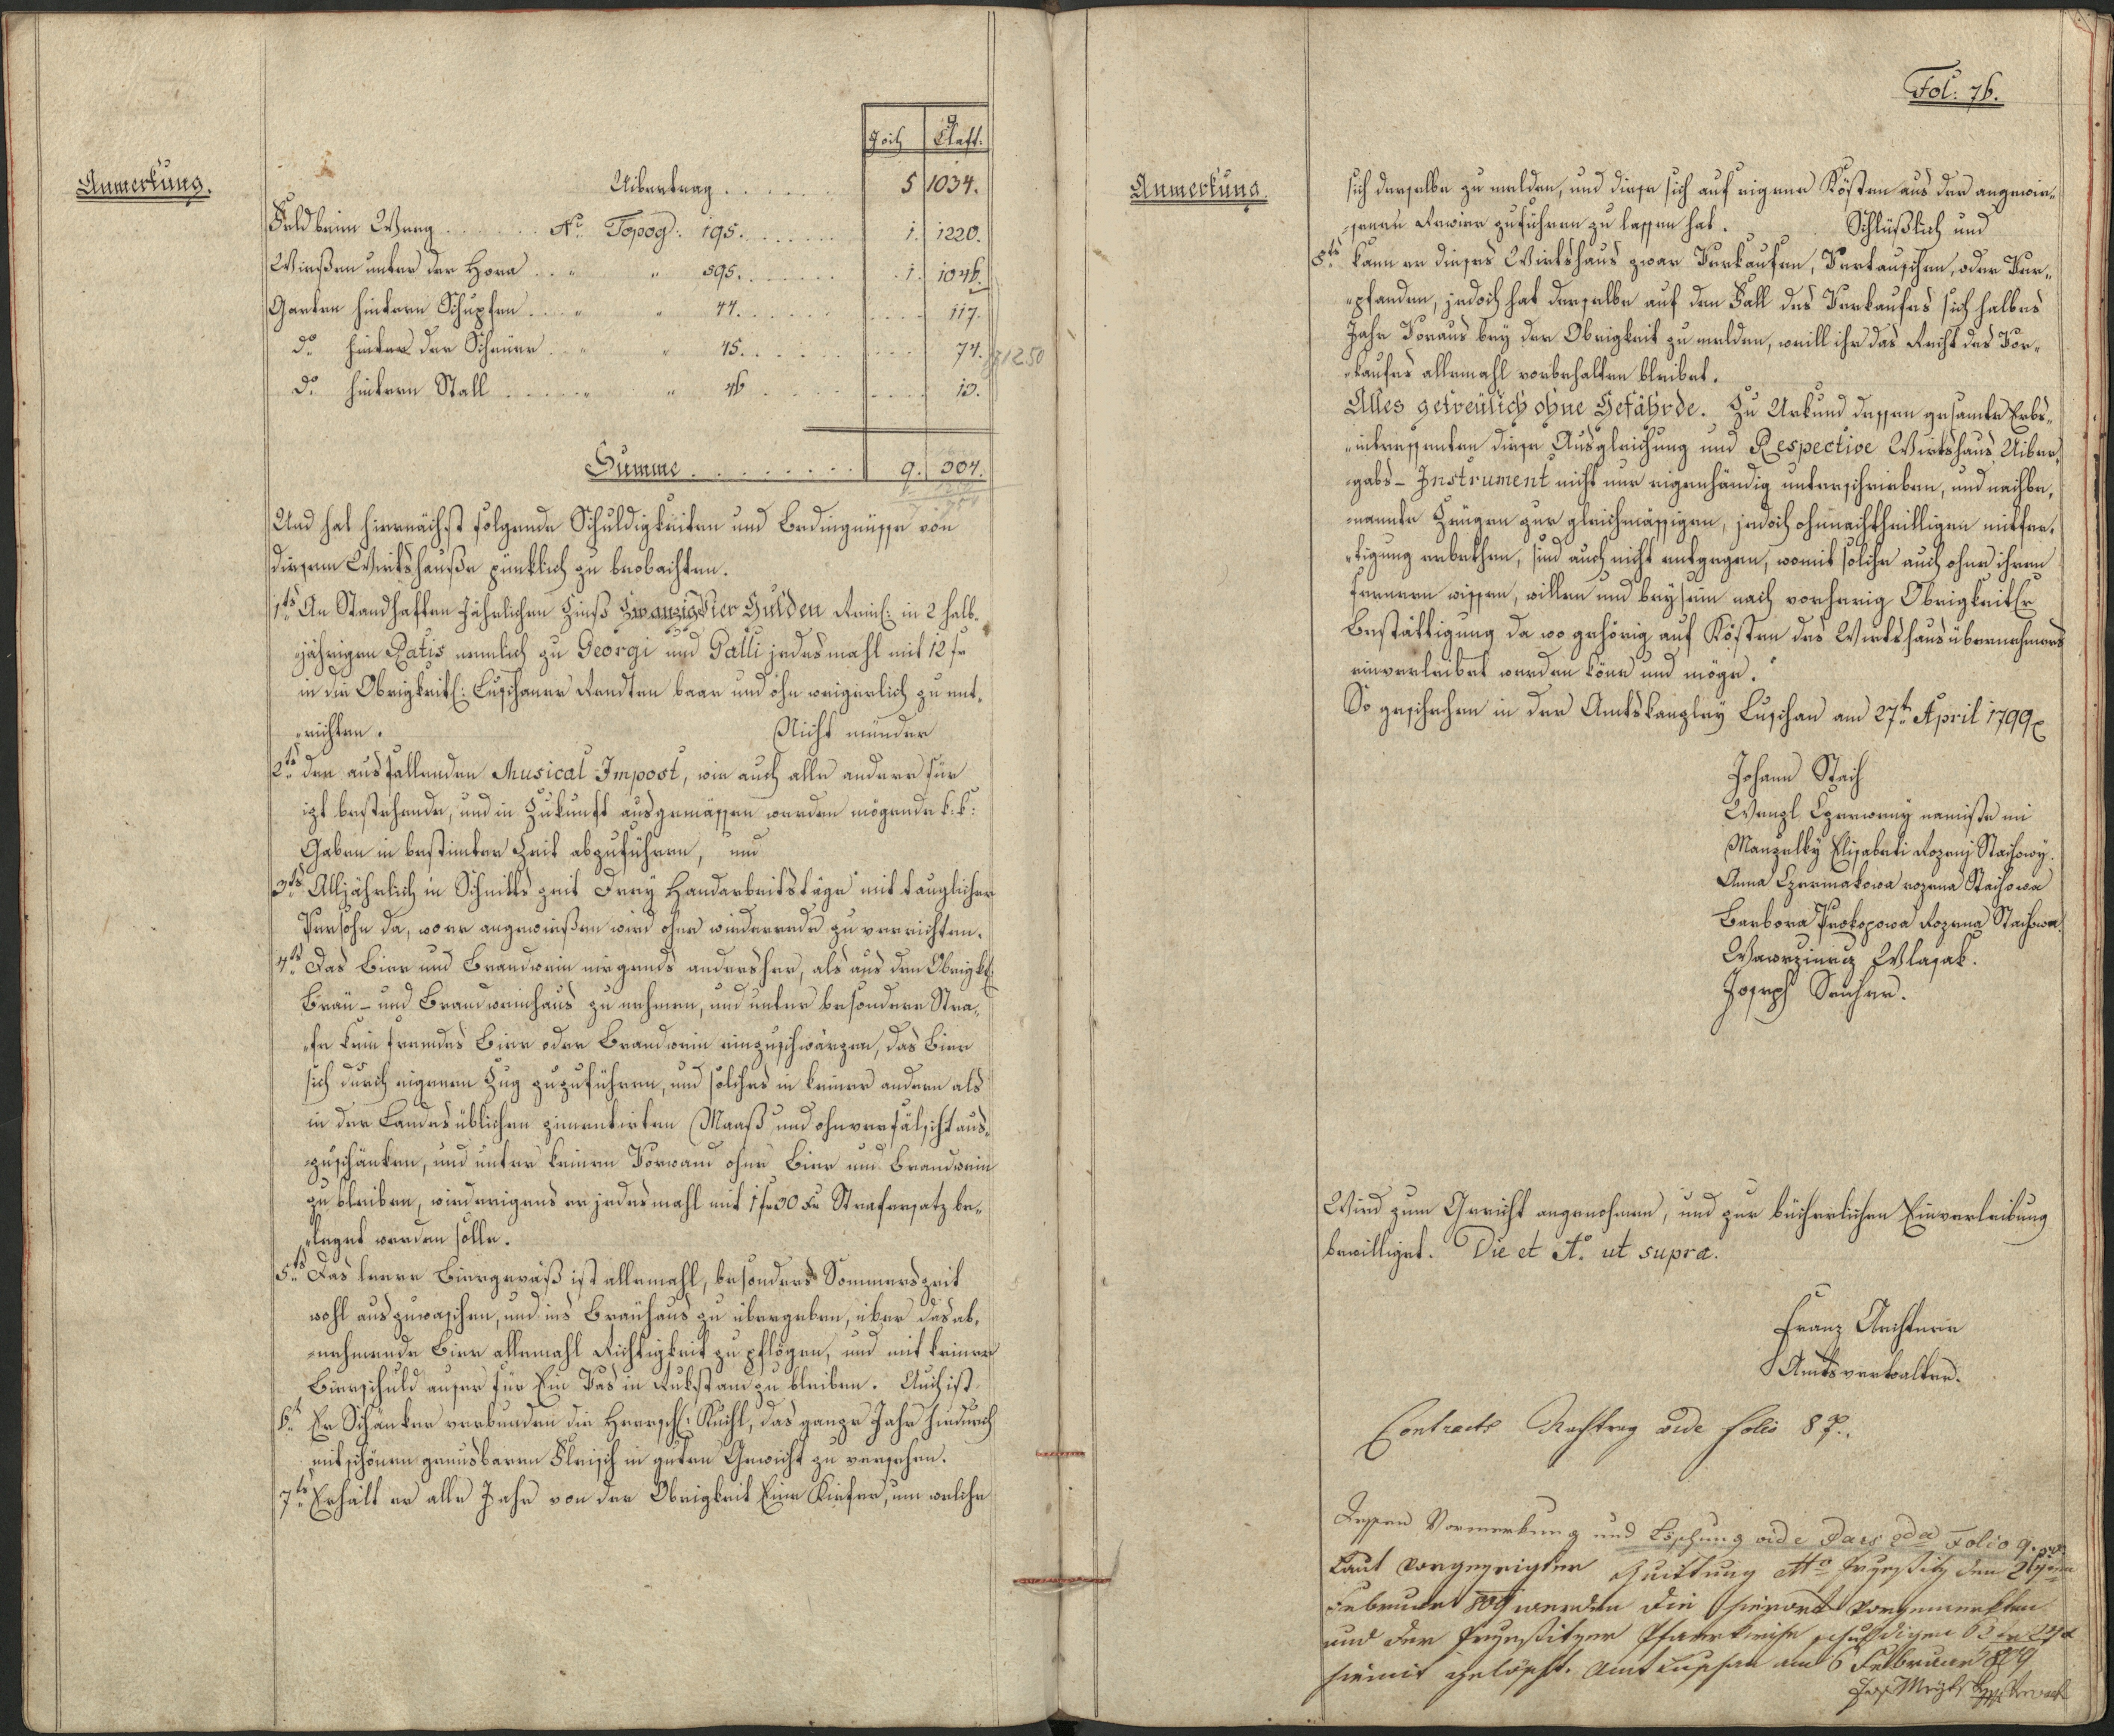 Anmerkung.
Joch Claft.
Uibertrag . . . . . . 5 1034.
Feld beim Weeg . . . . . . No Topog: 195. . . . . . . 1. 1220.
Wießen unter der Hora . . " " 595. . . . . . . 1. 1046.
Garten hintern Schupfen . . . " " 44. . . . . . . . . . . 117.
do hinter der Scheuer . . " " 45. . . . . . . . . . . 74.
1250
do hintern Stall . . . . . " " 46 . . . . . . . . . 13.
Summe . . . . . . . . 9. 304.
Und hat hiernächst folgende Schuldigkeiten und Bedingnüsse von
diesem Wirtshauße pünktlich zu beobachten.
1tens An Standhaften Jährlichen Zinß Zwanzig Vier Gulden Reinl: in 2 halb-
jährigen Ratis nemlich zu Georgi und Galli jedesmahl mit 12 fr
in die Obrigkeitl: Luschaner Rendten baar und ohnweigerlich zu ent-
richten. Nicht münder
2tens den ausfallenden Musical-Impost, wie auch alle andere für
izt bestehende, und in Zukunft ausgemässen werden mögende k: k:
Gaben in bestimter Zeit abzuführen, und
3tens Alljährlich in Schnitts zeit Drey Handarbeitstäge mit tauglicher
Persohn da, wo er angewießen wird ohne wiederrede zu verrichten.
4tens Das Bier und Brandwein nirgends andersher, als aus den Obrigktl:
Bräu- und Brandweinhaus zu nehmen, und unter besonderer Stra-
fe kein fremdes Bier oder Brandwein einzuschwärzen, das Bier
sich durch eigenen Zug zuzuführen, und solches in keiner andern als
in der Landes üblichen zimentirten Maaß und ohnverfälscht aus-
zuschänken, und unter keinen Vorwand ohne Bier und Brandwein
zu bleiben, wiedrigens er jedesmahl mit 1 f 30 Xr Strafersatz be-
leget werden solle.
5tens Das leere Biergeväß ist allemahl, besonders Sommerszeit
wohl auszuwaschen, und ins Bräuhaus zu übergeben, über das ab-
nehmende Bier allemahl Richtigkeit zu pflögen, und mit keiner
Bierschuld auser für Ein Vas in Rukstand zu bleiben. Auch ist
6t Er Schänker verbunden die Herrschl: Kuchl, das ganze Jahr hindurch
mit schönen genusbaren Fleisch in guten Gewicht zu versehen.
7tens Erhält er alle Jahr von der Obrigkeit Eine Kiefer, um welche
Fol: 76.
Anmerkung.
sich derselbe zu melden, und diese sich auf eigene Kösten aus der angewie-
senen Revier zuführen zu lassen hat. Schlüßlich und
8tens kann er dieses Wirtshaus zwar Verkaufen, Vertauschen, oder Ver-
pfanden, jedoch hat derselbe auf den Fall des Verkaufes sich halbes
Jahr Voraus bey der Obrigkeit zu melden, weill ihr das Recht des Vor-
kaufes allemahl vorbehalten bleibet.
Alles getreülich ohne Gefährde. Zu Urkund dessen gesamte Erbs-
intressenten diese Ausgleichung und Respective Wirtshaus Uiber-
gabs- Instrument nicht nur eigenhändig unterschrieben, und nachbe-
nannte Zeugen zur gleichmässigen, jedoch ohnnachtheilligen mitfer-
tigung erbethen, sind auch nicht entgegen, womit solche auch ohne ihren
ferneren wissen, willen und beysein nach vorherig Obrigkeitlr
Bestättigung da wo gehörig auf Kösten des Wirtshausübernehmers
einverleibet werden köne und möge.
So geschehen in der Amtskanzley Luschan am 27tn April 1799
Johann Stach
Wenzl Czerweny namiste mi
Manzelky Elisabeti Rozeny Stachowy.
Anna Czermakowa rozena Stachowa
Barbora Prokopowa Rozena Stachowa.
Wawrzinecz Wlasak.
Joseph
Wird zum Gericht angenohmen, und zur bücherlichen Einverleibung
bewilliget. Die et Ao ut supra.
Franz
Amtsverwalter.
Contracts Nachtrag vide folio 87.
Dessen Vormerkung und Löschung vide Pars 2da Folio 9.
Laut vorgezeigter Quittung den
Februar 809 werden die hierort vorgemerkten
und der schuldigen
hiemit gelöscht. Amt Luschan am 6 Februar 809